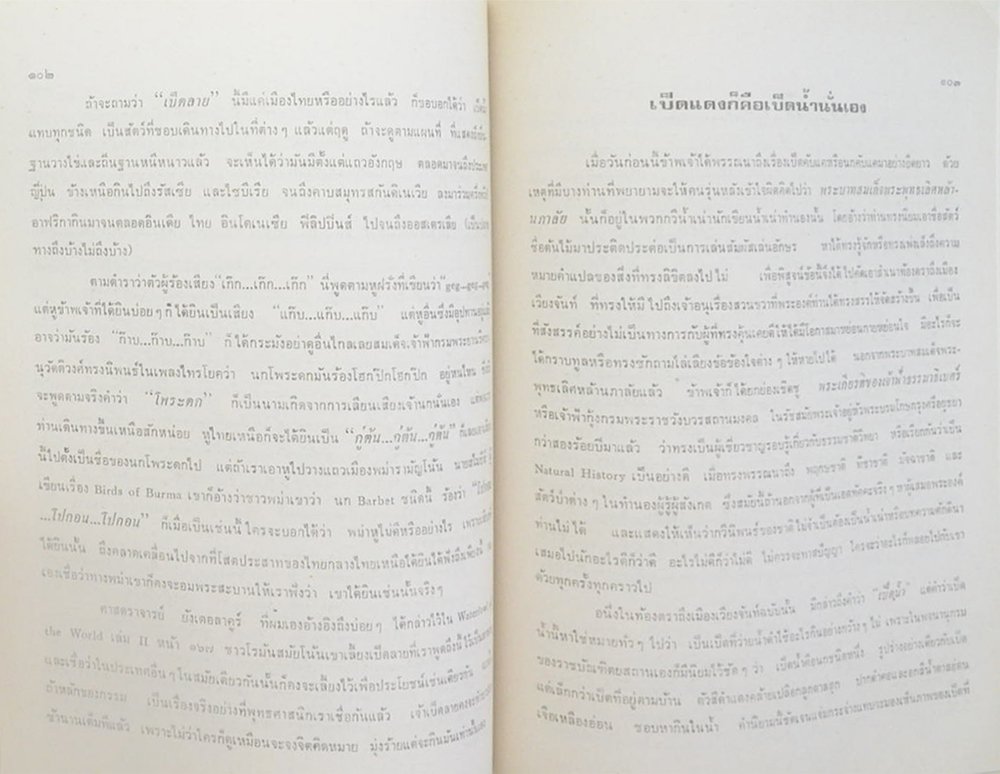 ๑๐๒
ถ้าจะถามว่า “เป็ดลาย” นี้มีแค่เมืองไทยหรืออย่างไรแล้ว ก็ขอบอกได้ว่า
แทบทุกชนิด เป็นสัตว์ที่ชอบเดินทางไปในที่ต่างๆ แล้วแต่ฤดู ถ้าจะดูตามแผนที่
ฐานวางไข่และถิ่นฐานหนีหนาวแล้ว จะเห็นได้ว่ามันมีตั้งแต่แถวอังกฤษ ตลอดมาจนถึงประเทศ
ญี่ปุ่น ข้างเหนือกินไปถึงรัสเซีย และไซบีเรีย จนถึงคาบสมุทรสกันดิเนเวีย
อาฟริกากินมาจนตลอดอินเดีย ไทย อินโดเนเซีย ฟิลิปปินส์ ไปจนถึงออสเตรเลีย
ทางถึงบ้างไม่ถึงบ้าง)
ตามตำราว่าตัวผู้ร้องเสียง “เก๊ก...เก๊ก...เก๊ก” นี่พูดตามหูฝรั่งที่เขียนว่า
แต่หูข้าพเจ้าที่ได้ยินบ่อยๆ ก็ได้ยินเป็นเสียง “แก๊บ...แก๊บ...แก๊บ” แต่หูอื่นซึ่งมีอุปทาน
อาจว่ามันร้อง “ก๊าบ...ก๊าบ...ก๊าบ” ก็ได้กระมังอย่าดูอื่นไกลเลยสมเด็จเจ้าฟ้ากรมพระยานริศรา
นุวัดติวงศ์ทรงนิพนธ์ในเพลงไทรโยคว่า นกโพระดกมันร้องโฮกป๊กโฮกป๊ก อยู่หนไหน
จะพูดตามจริงคำว่า “โพระดก” ก็เป็นนามเกิดจากการเลียนเสียงเจ้านกนั่นเอง
ท่านเดินทางขึ้นเหนือสักหน่อย หูไทยเหนือก็จะได้ยินเป็น “กู่ตัน...กู่ตัน...กู่ตัน”
นี้ไปตั้งเป็นชื่อของนกโพระดกไป แต่ถ้าเราเอาหูไปวางแถวเมืองพม่ารามัญโน้น
เขียนเรื่อง Birds of Burma เขาก็อ้างว่าชาวพม่าเขาว่า นก Barbet ชนิดนี้ ร้องว่า
...ไปกอน...ไปกอน” ก็เมื่อเป็นเช่นนี้ใครจะบอกได้ว่า พม่าหูไม่ดีหรืออย่างไร
ได้ยินนั้น ถึงคลาดเคลื่อนไปจากที่โสตประสาทของไทยกลางไทยเหนือได้ยินได้ฟังถึงเพียงนั้น
เองเชื่อว่าทางพม่าเขาก็คงจะอมพระสะบานให้เราฟังว่า เขาได้ยินเช่นนั้นจริงๆ
ศาสตราจารย์ ยังเดอลาคูร์ ที่ผมเองอ้างอิงถึงบ่อยๆ ได้กล่าวไว้ใน
the World เล่ม II หน้า ๑๖๗ ชาวโรมันสมัยโน้นเขาเลี้ยงเป็ดลายที่เราพูดถึงนี้
และเชื่อว่าในประเทศอื่นๆ ในสมัยเดียวกันนั้นก็คงจะเลี้ยงไว้เพื่อประโยชน์เช่นเดียวกัน
ถ้าหลักของกรรม เป็นเรื่องจริงอย่างที่พุทธศาสนิกเราเชื่อกันแล้ว เจ้าเป็ดลายคง
ช้านานเต็มทีแล้ว เพราะไม่ว่าใครก็ดูเหมือนจะจงจิตคิดหมาย มุ่งร้ายแต่จะกินมัน
๑๐๓
เป็ดแดงก็คือเป็ดน้ำนั่นเอง
เมื่อวันก่อนนี้ข้าพเจ้าได้พรรณนาถึงเรื่องเป็ดคับแคหรือนกคับแคมาอย่างยืดยาว ด้วย
เหตุที่มีบางท่านที่พยายามจะให้คนรุ่นหลังเข้าใจผิดคิดไปว่า พระบาทสมเด็จพระพุทธเลิศหล้า-
นภาลัย นั้นก็อยู่ในพวกกวีน้ำเน่านักเขียนน้ำเน่าทำนองนั้น โดยอ้างว่าท่านทรงนิยมเอาชื่อสัตว์
ชื่อต้นไม้มาประดิดประต่อเป็นการเล่นสัมผัสเล่นอักษร หาได้ทรงรู้จักหรือทรงเพ่งเล็งถึงความ
หมายคำแปลของสิ่งที่ทรงลิขิตลงไปไม่ เพื่อพิสูจน์ข้อนี้จึงได้ไปคัดเอาสำเนาท้องตราถึงเมือง
เวียงจันท์ ที่ทรงให้มีไปถึงเจ้าอนุเรื่องสวนขวาที่พระองค์ท่านได้ทรงสรรให้จัดสร้างขึ้น เพื่อเป็น
ที่สังสรรค์อย่างไม่เป็นทางการกับผู้ที่ทรงคุ้นเคยดีให้ได้มีโอกาสมาหย่อนกายหย่อนใจ มีอะไรก็จะ
ได้กราบทูลหรือทรงซักถามไล่เลียงข้อข้องใจต่างๆ ให้หายไปได้ นอกจากพระบาทสมเด็จพระ-
พุทธเลิศหล้านภาลัยแล้ว ข้าพเจ้าก็ได้ยกย่องเชิดชู พระเกียรติของเจ้าฟ้าธรรมาธิเบศร์
หรือเจ้าฟ้ากุ้งกรมพระราชวังบวรสถานมงคล ในรัชสมัยพระเจ้าอยู่หัวพระบรมโกษกรุงศรีอยุธยา
กว่าสองร้อยปีมาแล้ว ว่าทรงเป็นผู้เชี่ยวชาญรอบรู้เกี่ยวกับธรรมชาติวิทยา หรือเรียกกันว่าเป็น
Natural History เป็นอย่างดี เมื่อทรงพรรณนาถึง พฤกษชาติ ทิชาชาติ มัจฉาชาติ และ
สัตว์ป่าต่างๆ ในทำนองผู้รู้ผู้สังเกต ซึ่งสมัยนี้ถ้านอกจากผู้ที่เป็นเอตทัคคะจริงๆ หาผู้เสมอพระองค์
ท่านไม่ได้ และแสดงให้เห็นว่ากวีนิพนธ์ของชาติไม่จำเป็นต้องเป็นน้ำเน่าหรือบทความคึกดีนา
เสมอไปนักอะไรดีก็ว่าดี อะไรไม่ดีก็ว่าไม่ดี ไม่ควรจะพาสปัญญา ใครจะว่าอะไรก็พลอยไปกับเขา
ด้วยทุกครั้งทุกคราวไป
อนึ่งในท้องตราถึงเมืองเวียงจันท์ฉบับนั้น มีกล่าวถึงคำว่า “เป็ดน้ำ” แต่คำว่าเป็ด
น้ำนี้หาใช่หมายทั่วๆ ไปว่า เป็นเป็ดที่ว่ายน้ำดำใช้อะไรกินอย่างกว้างๆ ไม่ เพราะในพจนานุกรม
ของราชบัณฑิตยสถานเองก็มีนิยมไว้ชัดๆ ว่า เป็ดน้ำคือนกชนิดหนึ่ง รูปร่างอย่างเดียวกับเป็ด
แต่เล็กกว่าเป็ดที่อยู่ตามบ้าน ตัวสีดำแดงคล้ายเปลือกลูกตาลสุก ปากดำคอแดงอกสีน้ำตาลอ่อน
เจือเหลืองอ่อน ชอบหากินในน้ำ คำนิยามนี้ชัดเจนแจ่มกระจ่างแทบจะมองเห็นภาพของเป็ดที่